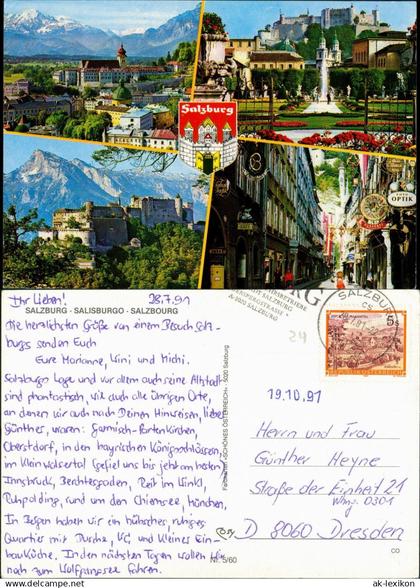 Salzburg
OPTIK
SALZBURG · SALISBURGO · SALZBOURG
Ihr Lieben! 28.7.91
Die herrlichsten Grüße von einem Besuch Salz-
burgs senden Euch
Eure Marianne, Kini und Michi.
Salzburgs Lage und vor allem auch seine Altstadt
sind phantastisch, wie auch alle übrigen Orte,
an denen wir auch nach Deinen Hinweisen, lieber
Günther, waren: Garmisch-Partenkirchen,
Oberstdorf, in den bayrischen Königsschlössern,
im Kleinwalsertal (gefiel uns bis jetzt am besten)
Innsbruck, Berchtesgaden, Reit im Winkl,
Ruhpolding, rund um den Chiemsee, München.
In haben wir ein hübsches, ruhiges
Quartier mit Dusche, WC und kleiner Ein-
bauküche. In den nächsten Tagen wollen wir
noch zum Wolfgangsee fahren.
Nr. 5/60
«SCHÖNES ÖSTERREICH» · 5020 Salzburg
SALZBURG
A-5020 SALZBURG
SALZBU
5s
24
19.10.91
Herrn und Frau
Günther Heyne
Straße der Einheit 21
Whg. 0301
D 8060 Dresden
CO
© by ak-lexikon.com